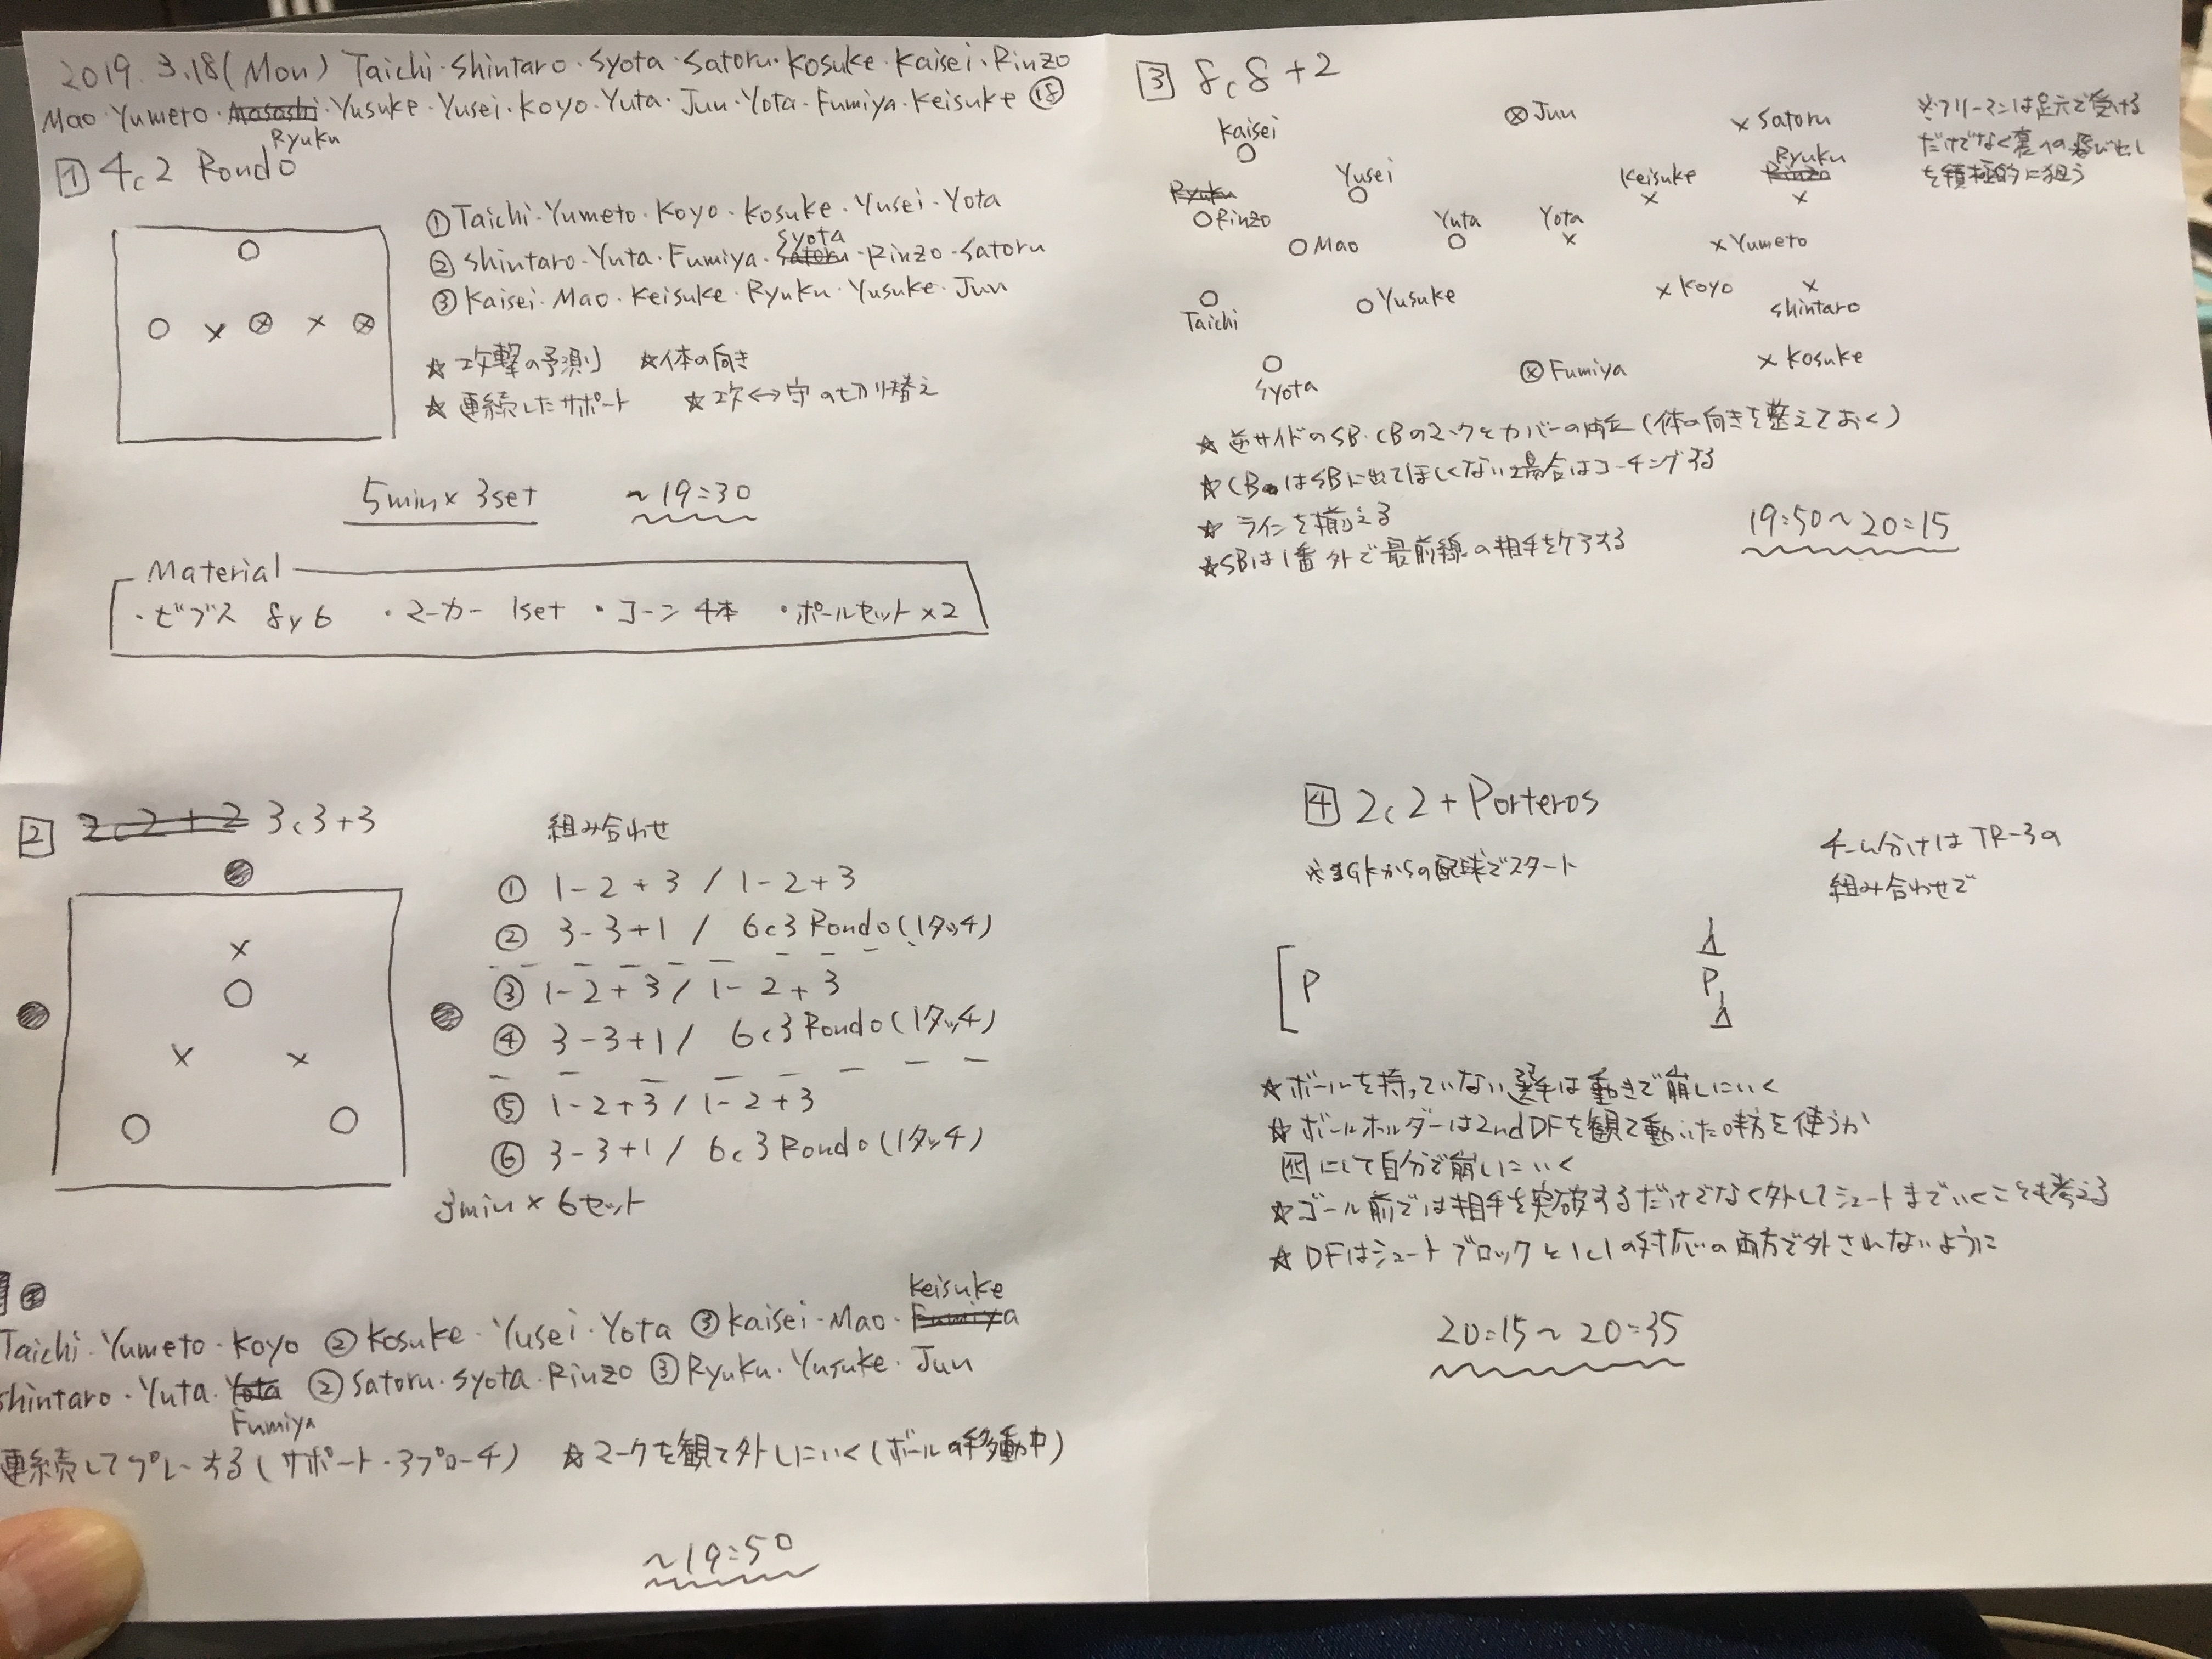 2019. 3.18 (Mon) Taichi・Shintaro・Syota・Satoru・Kosuke・Kaisei・Rinzo
Mao・Yumeto・Masashi・Yusuke・Yusei・Koyo・Yuta・Jun・Yota・Fumiya・Keisuke ⑱
Ryuku
1 4c2 Rondo
①Taichi・Yumeto・Koyo・Kosuke・Yusei・Yota
Syota
②Shintaro・Yuta・Fumiya・Satoru・Rinzo・Satoru
③Kaisei・Mao・Keisuke・Ryuku・Yusuke・Jun
☆攻撃の予測 ☆体の向き
☆連続したサポート ☆攻↔守の切り替え
5min × 3set ～19:30
Material
・ビブス 8y6 ・マーカー 1set ・コーン 4本 ・ボールセット×2
2 2c2+2 3c3+3
組み合わせ
① 1-2+3 / 1-2+3
② 3-3+1 / 6c3 Rondo (1タッチ)
③ 1-2+3 / 1-2+3
④ 3-3+1 / 6c3 Rondo (1タッチ)
⑤ 1-2+3 / 1-2+3
⑥ 3-3+1 / 6c3 Rondo (1タッチ)
3min × 6セット
Keisuke
Taichi・Yumeto・Koyo ②Kosuke・Yusei・Yota ③Kaisei・Mao・Fumiya
Shintaro・Yuta・Yota ②Satoru・Syota・Rinzo ③Ryuku・Yusuke・Jun
Fumiya
連続してプレーする(サポート・アプローチ) ☆マークを観て外しにいく(ボールの移動中)
～19:50
3 8c8+2
※フリーマンは足元で受ける
だけでなく裏への飛び出し
を積極的に狙う
Kaisei
Jun
Satoru
Ryuku
Yusei
Keisuke
Rinzo
Ryuku
Rinzo
Mao
Yuta
Yota
Yumeto
Taichi
Yusuke
Koyo
Shintaro
Syota
Fumiya
Kosuke
☆逆サイドのSB・CBのマークとカバーの両立(体の向きを整えておく)
☆CBはSBに出てほしくない場合はコーチングする
☆ラインを揃える
☆SBは1番外で最前線の相手をケアする
19:50～20:15
4 2c2+Porteros
※GKからの配球でスタート
チーム分けはTR-3の
組み合わせで
P
P
☆ボールを持っていない選手は動きで崩しにいく
☆ボールホルダーは2ndDFを観て動いた味方を使うか
囮にして自分で崩しにいく
☆ゴール前では相手を突破するだけでなく外してシュートまでいくことも考える
☆DFはシュートブロックと1c1の対応の両方で外されないように
20:15～20:35